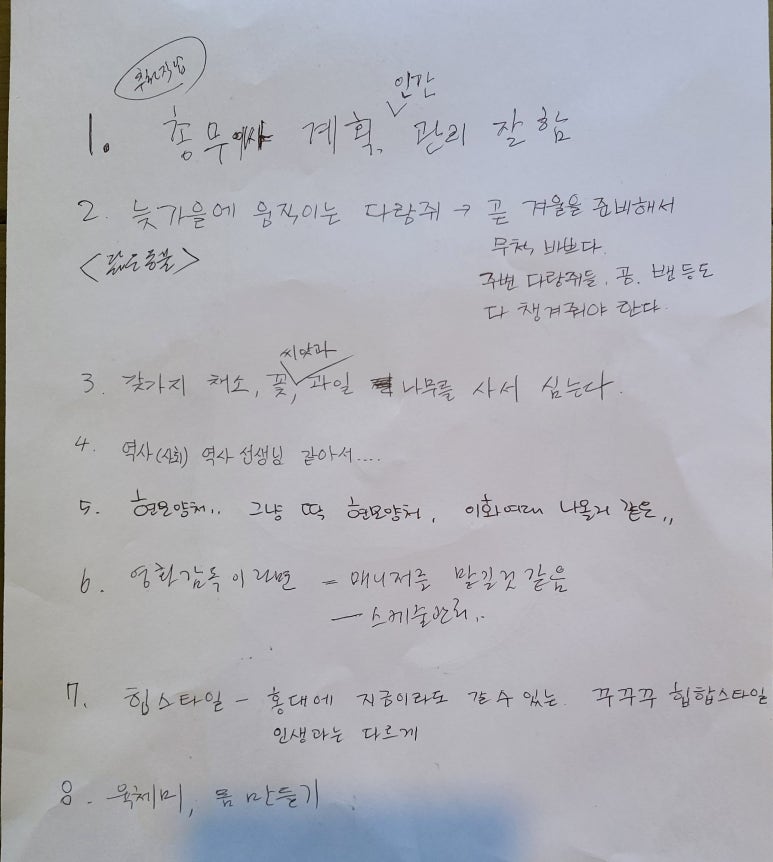 추천직업
인간
1. 총무이사 계획, 관리 잘 함
2. 늦가을에 움직이는 다람쥐 → 곧 겨울을 준비해서
<닮은동물>
무척 바쁘다.
주변 다람쥐들, 곰, 뱀등도
다 챙겨줘야 한다.
씨앗과
3. 갖가지 채소, 꽃, 과일 나무를 사서 심는다.
4. 역사(사회) 역사 선생님 같아서....
5. 현모양처.. 그냥 딱 현모양처, 이화여대 나올거 같은,,
6. 영화감독이라면 = 매니저를 맡길것 같음
― 스케줄관리..
7. 힙스타일 - 홍대에 지금이라도 갈 수 있는. 꾸꾸꾸 힙합스타일
인생과는 다르게
8. 육체미, 몸 만들기